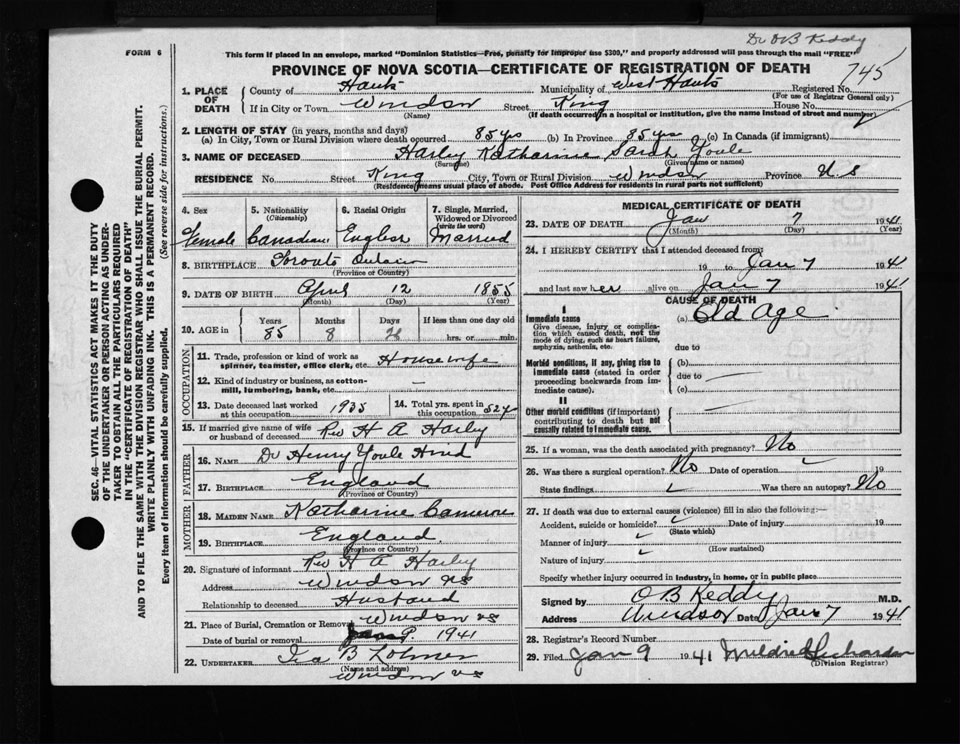 Dr O B Keddy
745
FORM 6
This form if placed in an envelope, marked "Dominion Statistics—Free, penalty for improper use $300," and properly addressed will pass through the mail "FREE"
PROVINCE OF NOVA SCOTIA—CERTIFICATE OF REGISTRATION OF DEATH
SEC. 46—VITAL STATISTICS ACT MAKES IT THE DUTY
OF THE UNDERTAKER OR PERSON ACTING AS UNDER-
TAKER TO OBTAIN ALL THE PARTICULARS REQUIRED
IN THE "CERTIFICATE OF REGISTRATION OF DEATH"
AND TO FILE THE SAME WITH THE DIVISION REGISTRAR WHO SHALL ISSUE THE BURIAL PERMIT.
WRITE PLAINLY WITH UNFADING INK. THIS IS A PERMANENT RECORD.
Every item of information should be carefully supplied. (See reverse side for instructions.)
1. PLACE OF DEATH
County of Hants Municipality of West Hants Registered No.
(For use of Registrar General only)
If in City or Town Windsor Street King House No.
(Name) (If death occurred in a hospital or institution, give the name instead of street and number)
2. LENGTH OF STAY (in years, months and days)
(a) In City, Town or Rural Division where death occurred 85 yrs (b) In Province 85 yrs (c) In Canada (if immigrant)
3. NAME OF DECEASED Harley Katharine Sarah Youle
(Surname) (Given name or names)
RESIDENCE No. Street King City, Town or Rural Division Windsor Province N.S
(Residence means usual place of abode. Post Office Address for residents in rural parts not sufficient)
4. Sex Female
5. Nationality (Citizenship) Canadian
6. Racial Origin English
7. Single, Married, Widowed or Divorced (write the word) Married
8. BIRTHPLACE Toronto Ontario
(Province or Country)
9. DATE OF BIRTH April 12 1855
(Month) (Day) (Year)
10. AGE in Years 85 Months 8 Days 26 If less than one day old hrs. or min.
OCCUPATION
11. Trade, profession or kind of work as spinner, teamster, office clerk, etc. Housewife
12. Kind of industry or business, as cotton-mill, lumbering, bank, etc. —
13. Date deceased last worked at this occupation 1935
14. Total yrs. spent in this occupation 52 y
15. If married give name of wife or husband of deceased Rev H A Harley
FATHER
16. NAME Dr Henry Youle Hind
17. BIRTHPLACE England
(Province or Country)
MOTHER
18. MAIDEN NAME Katharine Cameron
19. BIRTHPLACE England.
(Province or Country)
20. Signature of informant Rev H A Harley
Address Windsor NS
Relationship to deceased Husband
21. Place of Burial, Cremation or Removal Windsor NS
Date of burial or removal Jan 9. 1941
22. UNDERTAKER Ira B Lohnes
(Name and address)
Windsor N.S
MEDICAL CERTIFICATE OF DEATH
23. DATE OF DEATH Jan 7 1941
(Month) (Day) (Year)
24. I HEREBY CERTIFY that I attended deceased from:
19 to Jan 7 1941
and last saw her alive on Jan 7 1941
CAUSE OF DEATH
I
Immediate cause (a) Old Age
Give disease, injury or complica-
tion which caused death, not the
mode of dying, such as heart failure,
asphyxia, asthenia, etc.
due to
Morbid conditions, if any, giving rise to (b)
immediate cause (stated in order due to
proceeding backwards from im-
mediate cause). (c)
II
Other morbid conditions (if important)
contributing to death but not
causally related to immediate cause.
25. If a woman, was the death associated with pregnancy? No
26. Was there a surgical operation? No Date of operation 19
State findings Was there an autopsy? No
27. If death was due to external causes (violence) fill in also the following:—
Accident, suicide or homicide? Date of injury 19
(State which)
Manner of injury
(How sustained)
Nature of injury
Specify whether injury occurred in industry, in home, or in public place
Signed by O B Keddy M.D.
Address Windsor Date Jan 7 1941
28. Registrar's Record Number
29. Filed Jan 9 1941 Mildred Richardson
(Division Registrar)